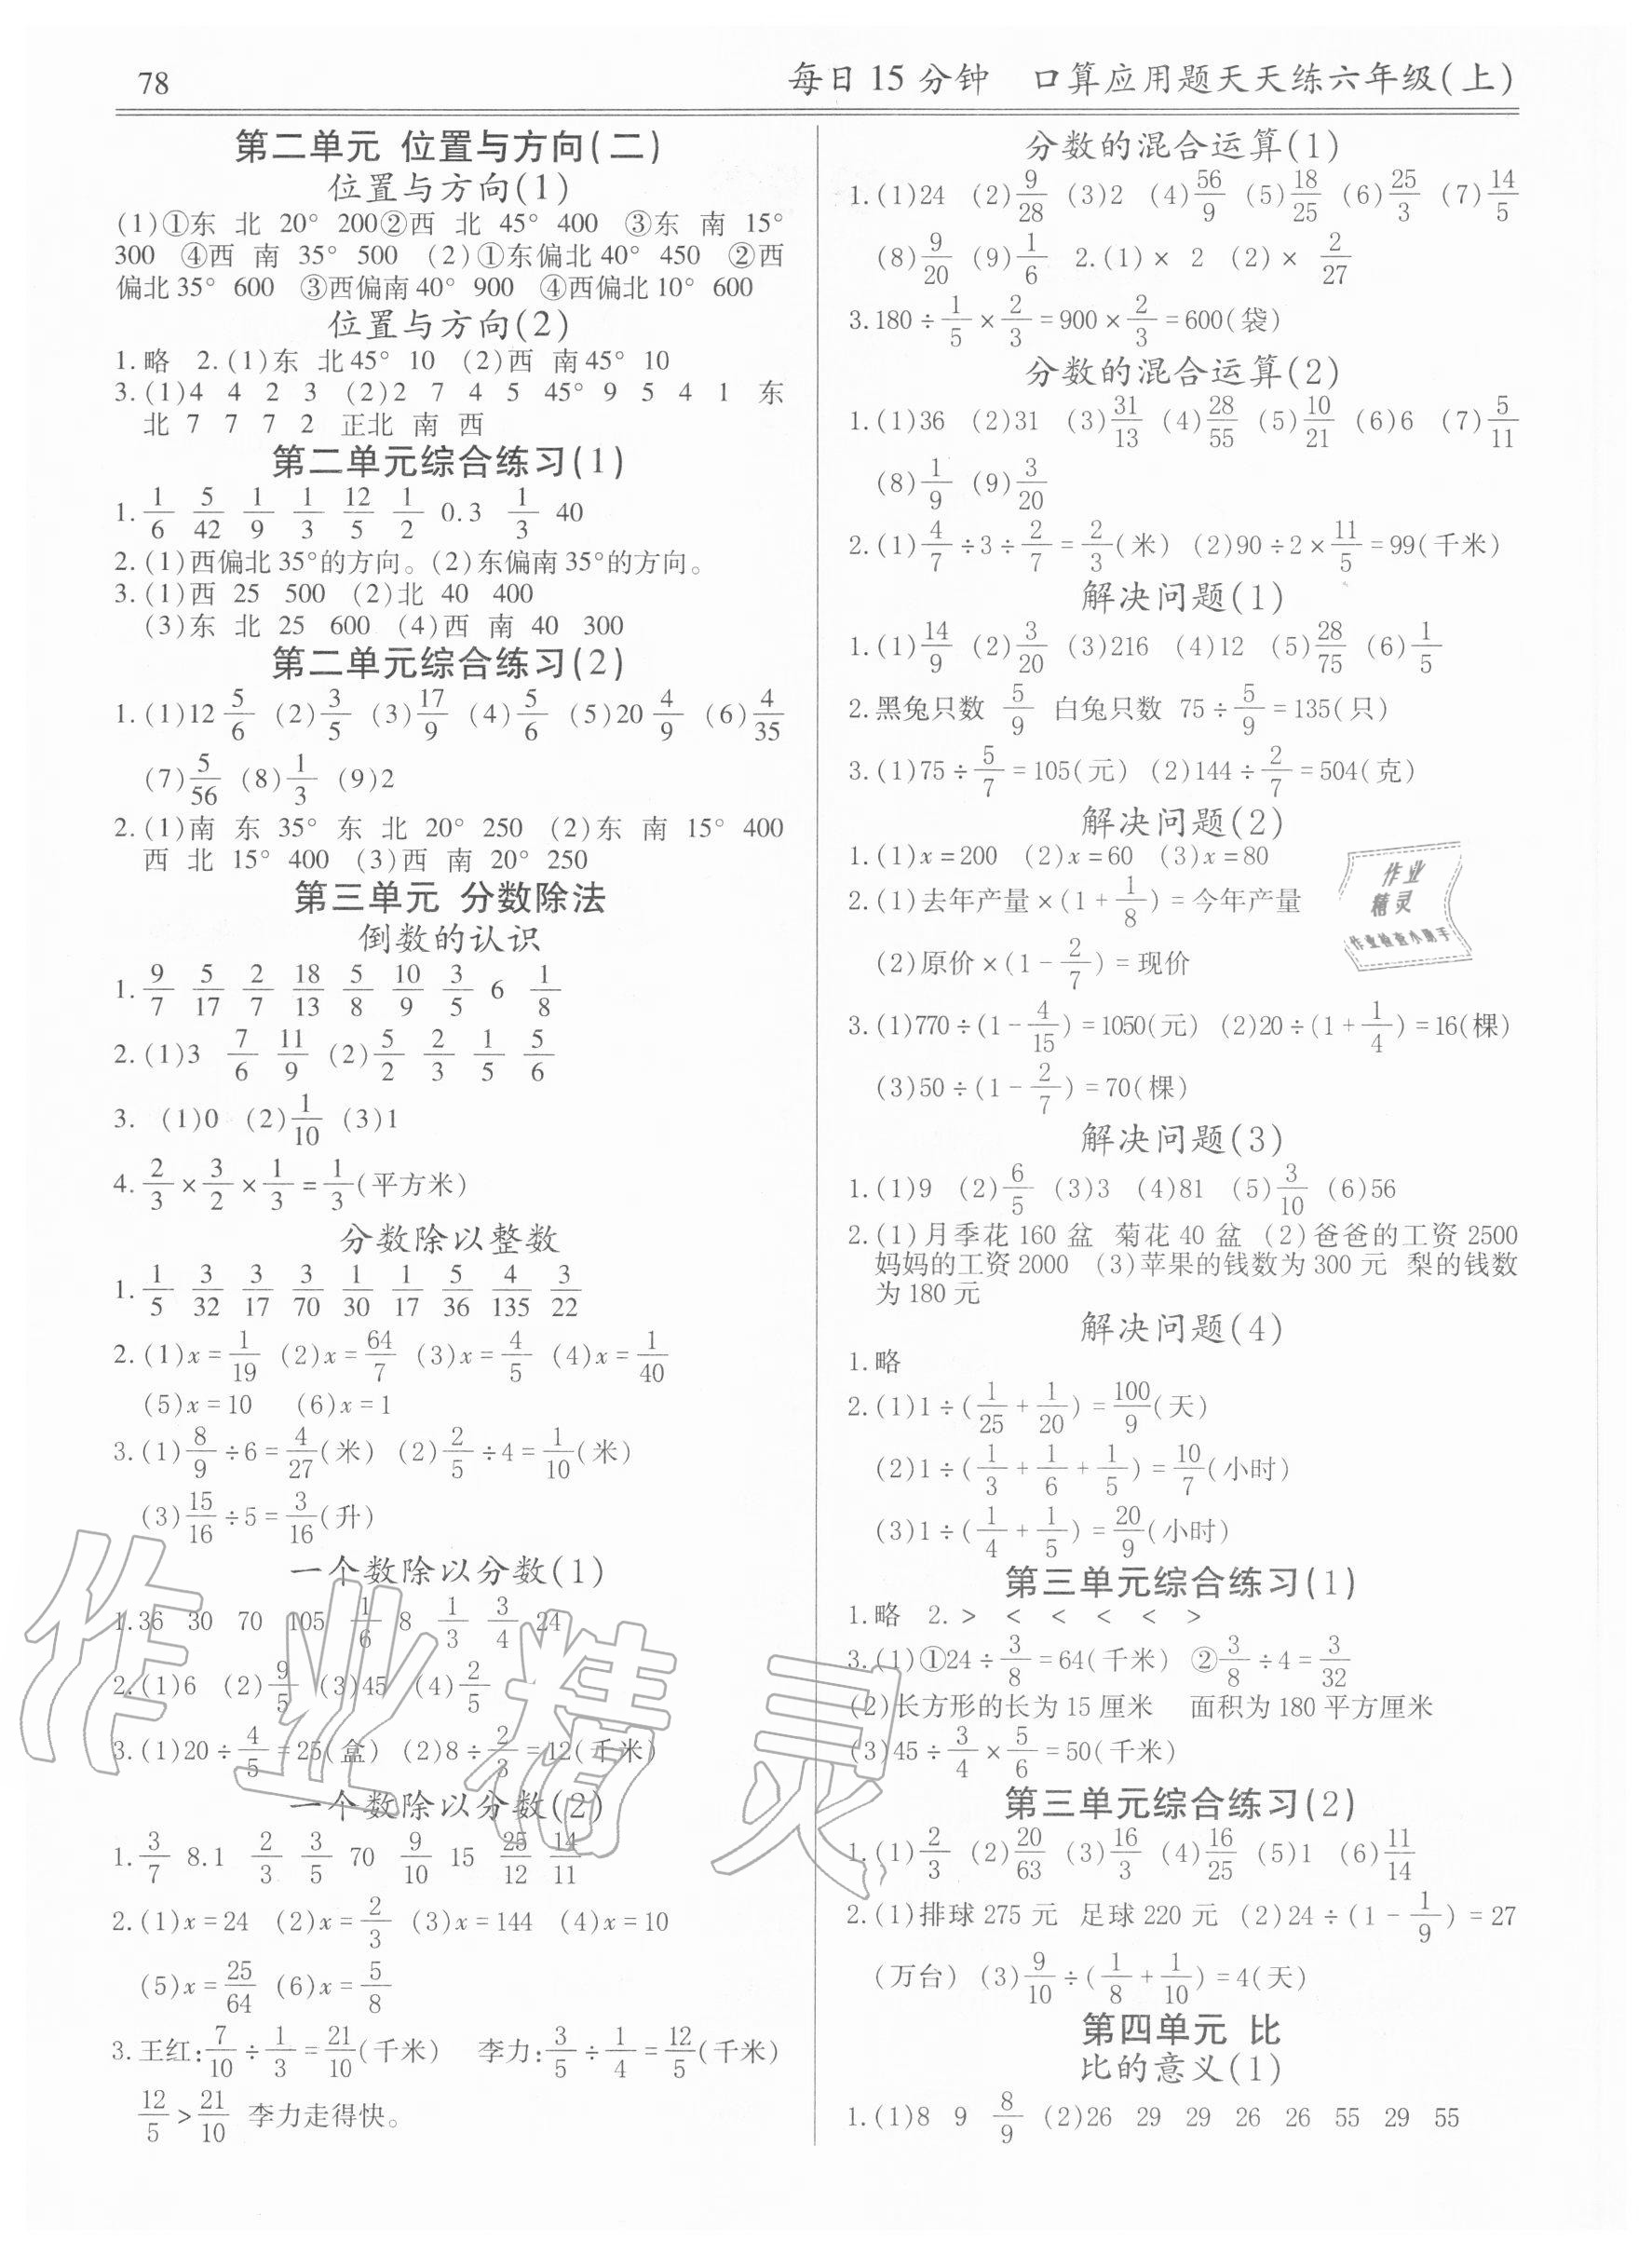 78
每日15分钟 口算应用题天天练六年级(上)
第二单元 位置与方向(二)
位置与方向(1)
(1)①东 北 20° 200②西 北 45° 400 ③东 南 15°
300 ④西 南 35° 500 (2)①东偏北40° 450 ②西
偏北35° 600 ③西偏南40° 900 ④西偏北10° 600
位置与方向(2)
1.略 2.(1)东 北45° 10 (2)西 南45° 10
3.(1)4 4 2 3 (2)2 7 4 5 45° 9 5 4 1 东
北 7 7 7 2 正北 南 西
第二单元综合练习(1)
1. 1/6 5/42 1/9 1/3 12/5 1/2 0.3 1/3 40
2.(1)西偏北35°的方向。(2)东偏南35°的方向。
3.(1)西 25 500 (2)北 40 400
(3)东 北 25 600 (4)西 南 40 300
第二单元综合练习(2)
1.(1)12 5/6 (2)3/5 (3)17/9 (4)5/6 (5)20 4/9 (6)4/35
(7)5/56 (8)1/3 (9)2
2.(1)南 东 35° 东 北 20° 250 (2)东 南 15° 400
西 北 15° 400 (3)西 南 20° 250
第三单元 分数除法
倒数的认识
1. 9/7 5/17 2/7 18/13 5/8 10/9 3/5 6 1/8
2.(1)3 7/6 11/9 (2)5/2 2/3 1/5 5/6
3. (1)0 (2)1/10 (3)1
4. 2/3×3/2×1/3=1/3(平方米)
分数除以整数
1. 1/5 3/32 3/17 3/70 1/30 1/17 5/36 4/135 3/22
2.(1)x=1/19 (2)x=64/7 (3)x=4/5 (4)x=1/40
(5)x=10 (6)x=1
3.(1)8/9÷6=4/27(米) (2)2/5÷4=1/10(米)
(3)15/16÷5=3/16(升)
一个数除以分数(1)
1.36 30 70 105 1/6 8 1/3 3/4 24
2.(1)6 (2)9/5 (3)45 (4)2/5
3.(1)20÷4/5=25(盒) (2)8÷2/3=12(千米)
一个数除以分数(2)
1. 3/7 8.1 2/3 3/5 70 9/10 15 25/12 14/11
2.(1)x=24 (2)x=2/3 (3)x=144 (4)x=10
(5)x=25/64 (6)x=5/8
3.王红:7/10÷1/3=21/10(千米) 李力:3/5÷1/4=12/5(千米)
12/5>21/10 李力走得快。
分数的混合运算(1)
1.(1)24 (2)9/28 (3)2 (4)56/9 (5)18/25 (6)25/3 (7)14/5
(8)9/20 (9)1/6 2.(1)× 2 (2)× 2/27
3.180÷1/5×2/3=900×2/3=600(袋)
分数的混合运算(2)
1.(1)36 (2)31 (3)31/13 (4)28/55 (5)10/21 (6)6 (7)5/11
(8)1/9 (9)3/20
2.(1)4/7÷3÷2/7=2/3(米) (2)90÷2×11/5=99(千米)
解决问题(1)
1.(1)14/9 (2)3/20 (3)216 (4)12 (5)28/75 (6)1/5
2.黑兔只数 5/9 白兔只数 75÷5/9=135(只)
3.(1)75÷5/7=105(元) (2)144÷2/7=504(克)
解决问题(2)
1.(1)x=200 (2)x=60 (3)x=80
2.(1)去年产量×(1+1/8)=今年产量
(2)原价×(1-2/7)=现价
3.(1)770÷(1-4/15)=1050(元) (2)20÷(1+1/4)=16(棵)
(3)50÷(1-2/7)=70(棵)
解决问题(3)
1.(1)9 (2)6/5 (3)3 (4)81 (5)3/10 (6)56
2.(1)月季花160盆 菊花40盆 (2)爸爸的工资2500
妈妈的工资2000 (3)苹果的钱数为300元 梨的钱数
为180元
解决问题(4)
1.略
2.(1)1÷(1/25+1/20)=100/9(天)
(2)1÷(1/3+1/6+1/5)=10/7(小时)
(3)1÷(1/4+1/5)=20/9(小时)
第三单元综合练习(1)
1.略 2.> < < < < >
3.(1)①24÷3/8=64(千米) ②3/8÷4=3/32
(2)长方形的长为15厘米 面积为180平方厘米
(3)45÷3/4×5/6=50(千米)
第三单元综合练习(2)
1.(1)2/3 (2)20/63 (3)16/3 (4)16/25 (5)1 (6)11/14
2.(1)排球275元 足球220元 (2)24÷(1-1/9)=27
(万台) (3)9/10÷(1/8+1/10)=4(天)
第四单元 比
比的意义(1)
1.(1)8 9 8/9 (2)26 29 29 26 26 55 29 55
作业
精灵
作业检查小助手
作业精灵